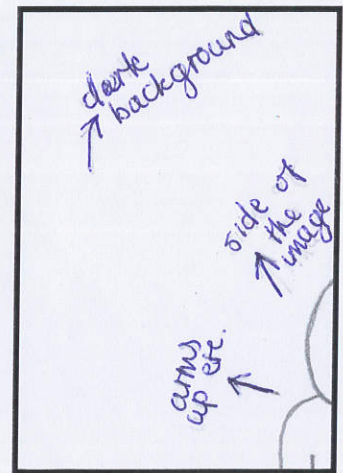 dark
background
side of
the
image
arms
up etc.